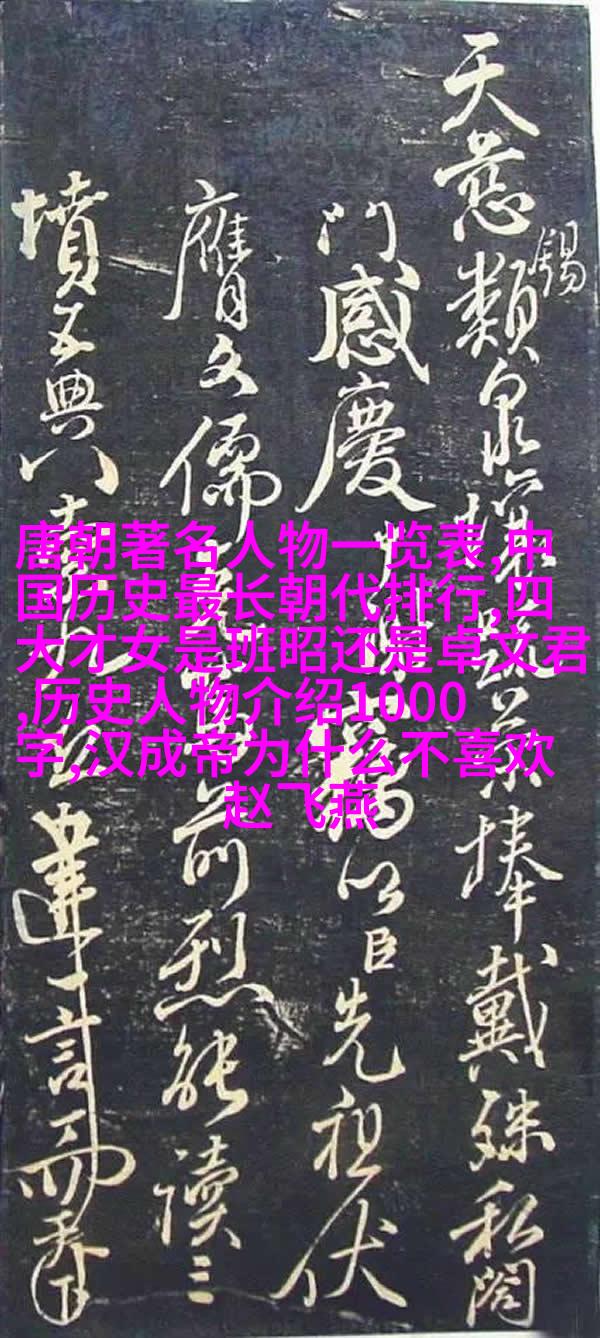 天慈類泉壤疏榮捧戴殊私闔
錫
門感慶以臣先祖伏
膺文儒前烈能讀三
墳五典八言
唐朝著名人物一览表,中
国历史最长朝代排行,四
大才女是班昭还是卓文君
,历史人物介绍1000
字,汉成帝为什么不喜欢
赵飞燕